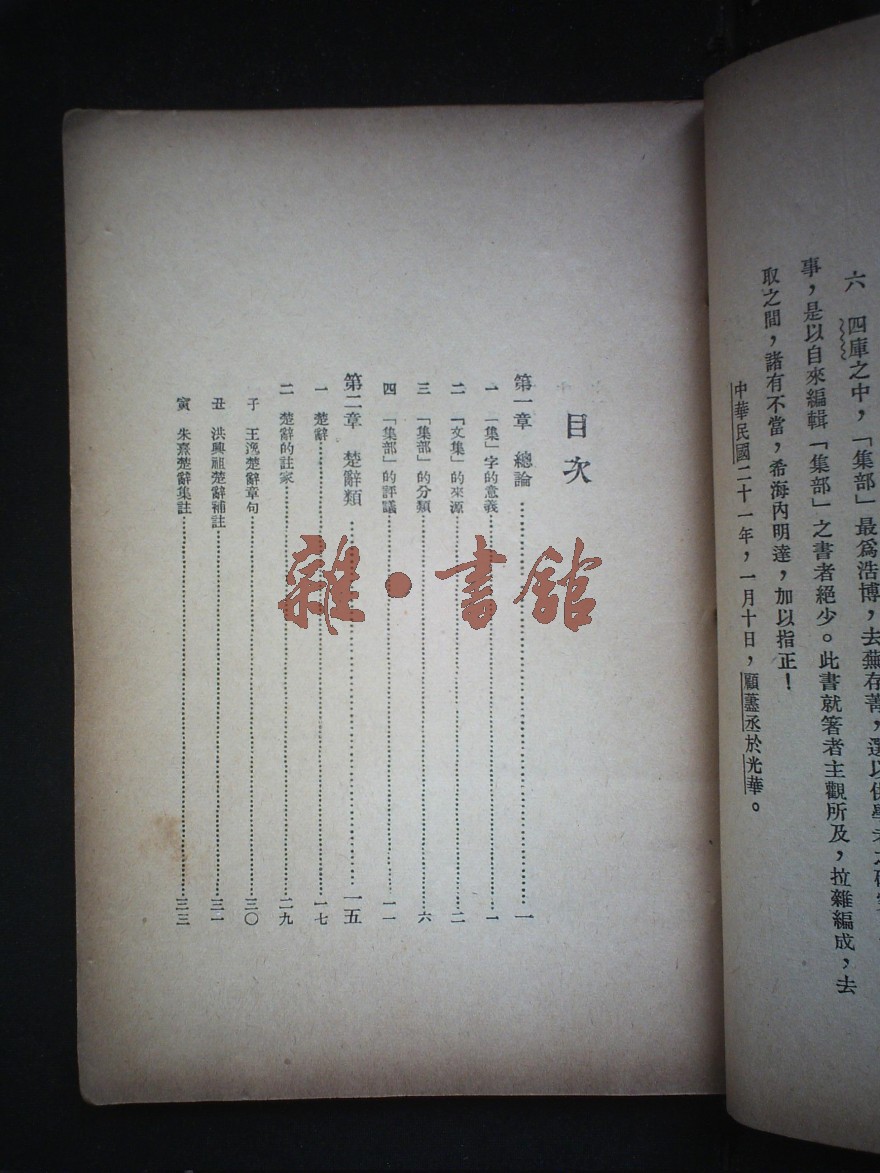 六　四庫之中，「集部」最爲浩博，去蕪存菁，還以供學者之研
事，是以自來編輯「集部」之書者絕少。此書就箸者主觀所及，拉雜編成，去
取之間，諸有不當，希海內明達，加以指正！
中華民國二十一年，一月十日，顧藎丞於光華。
目次
第一章　總論……一
一　「集」字的意義……一
二　「文集」的來源……二
三　「集部」的分類……六
四　「集部」的評議……一一
第二章　楚辭類……一五
一　楚辭……一七
二　楚辭的註家……二九
子　王逸楚辭章句……三〇
丑　洪興祖楚辭補註……三一
寅　朱熹楚辭集註……三三
雜·書館